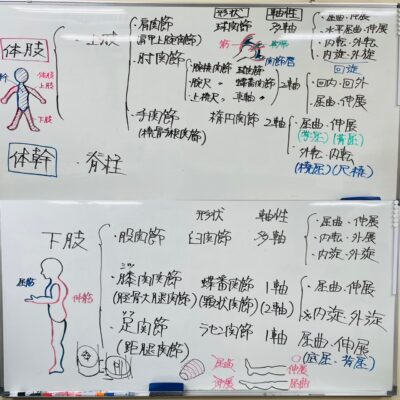 形状 軸性
体肢 上肢 ・肩関節 球関節 多軸 ・屈曲・伸展
(肩甲上腕関節) ・水平屈曲・伸展
・外転・内転
・内旋・外旋
・肘関節 回旋
腕橈関節 球関節
腕尺 〃 蝶番関節 2軸 ・回内・回外
上橈尺 〃 車軸 〃 ・屈曲・伸展
体肢
上肢
下肢
・手関節 楕円関節 2軸 ・屈曲・伸展
(橈骨手根関節) (掌屈) (背屈)
・外転・内転
(橈屈) (尺屈)
体幹 ・脊柱
形状 軸性
下肢 ・股関節 臼関節 多軸 ・屈曲・伸展
・内転・外転
・内旋・外旋
・膝関節 蝶番関節 1軸 ・屈曲・伸展
(脛骨大腿関節) (顆状関節) (2軸) ※内旋・外旋
屈筋 伸筋
・足関節 ラセン関節 1軸 屈曲・伸展
(距腿関節) (底屈・背屈)
屈筋 伸展
伸筋 屈曲